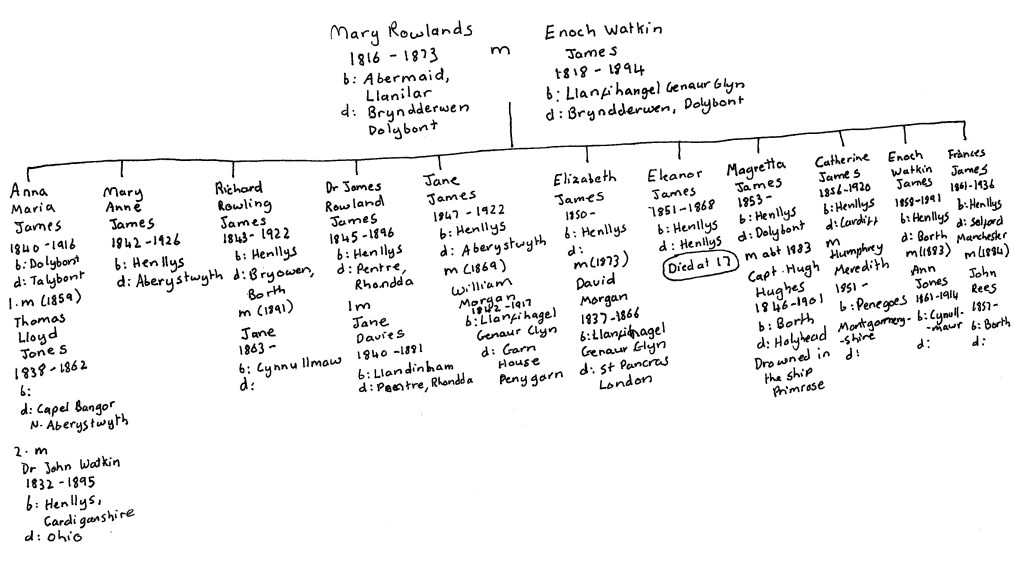 Mary Rowlands
1816 - 1873
b: Abermaid,
Llanilar
d: Bryndderwen
Dolybont
m
Enoch Watkin
James
1818 - 1894
b: Llanfihangel Genaur Glyn
d: Bryndderwen, Dolybont
Anna
Maria
James
1840 - 1916
b: Dolybont
d: Talybont
1. m (1859)
Thomas
Lloyd
Jones
1838 - 1862
b:
d: Capel Bangor
N. Aberystwyth
2. m
Dr John Watkin
1832 - 1895
b: Henllys,
Cardiganshire
d: Ohio
Mary
Anne
James
1842 - 1926
b: Henllys
d: Aberystwyth
Richard
Rowling
James
1843 - 1922
b: Henllys
d: Bryowen,
Borth
m (1891)
Jane
1863 -
b: Cynnullmaw
d:
Dr James
Rowland
James
1845 - 1896
b: Henllys
d: Pentre,
Rhondda
1m
Jane
Davies
1840 - 1881
b: Llandinham
d: Pentre, Rhondda
Jane
James
1847 - 1922
b: Henllys
d: Aberystwyth
m (1869)
William
Morgan
1842 - 1917
b: Llanfihagel
Genaur Glyn
d: Garn
House
Penygarn
Elizabeth
James
1850 -
b: Henllys
d:
m (1873)
David
Morgan
1837 - 1866
b: Llanfihagel
Genaur Glyn
d: St Pancras
London
Eleanor
James
1851 - 1868
b: Henllys
d: Henllys
Died at 17
Magretta
James
1853 -
b: Henllys
d: Dolybont
m abt 1883
Capt. Hugh
Hughes
1846 - 1901
b: Borth
d: Holyhead
Drowned in
the ship
Primrose
Catherine
James
1856 - 1920
b: Henllys
d: Cardiff
m
Humphrey
Meredith
1851 -
b: Penegoes
Montgomery-
-shire
d:
Enoch
Watkin
James
1858 - 1891
b: Henllys
d: Borth
m (1883)
Ann
Jones
1861 - 1914
b: Cynull-
-mawr
d:
Frances
James
1861 - 1936
b: Henllys
d: Salford
Manchester
m (1884)
John
Rees
1857 -
b: Borth
d: